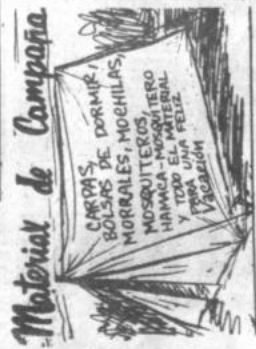 Material de Campaña
CARPAS,
BOLSAS DE DORMIR,
MORRALES, MOCHILAS,
MOSQUITEROS,
HAMACA-MOSQUITERO
Y TODO EL MATERIAL
PARA UNA FELIZ
Vacación